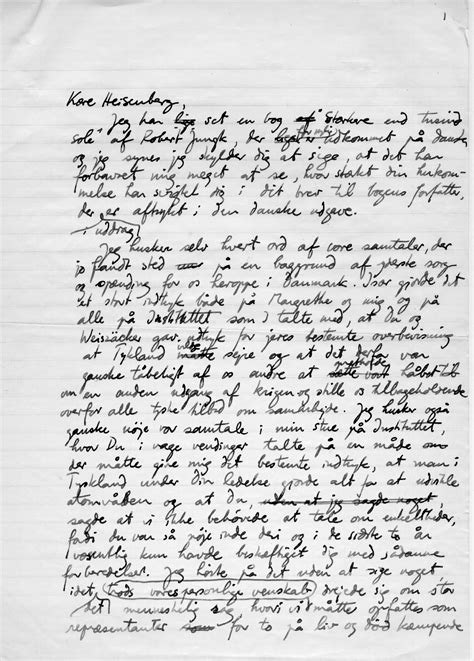 1
Kære Heisenberg,
Jeg har set en bog "Stærkere end tusind
sole" af Robert Jungk, der for nylig udkommet på dansk
og jeg synes jeg skylder dig at sige, at det har
forbavset mig meget at se, hvor stærkt din hukom-
melse har sviktet dig i dit brev til bogens forfatter,
der er aftrykt i den danske udgave.
i uddrag
Jeg husker selv hvert ord af vore samtaler, der
jo fandt sted på en baggrund af sorg
og spænding for os heroppe i Danmark. Især gjorde det
et stort indtryk både på Margrethe og mig og på
alle på Instituttet som I talte med, at Du og
Weizsäcker gav udtryk for jeres bestemte overbevisning
at Tyskland ville sejre og at det derfor var
ganske tåbeligt af os andre at håbet
om en anden udgang af krigen og stille os tilbageholdende
overfor alle tyske tilbud om samarbejde. Jeg husker også
ganske nøje vor samtale i min stue på Instituttet,
hvor Du i vage vendinger talte på en måde
der måtte give mig det bestemte indtryk, at man i
Tyskland under Din ledelse gjorde alt for at udvikle
atomvåben og at Du, uden at jeg sagde noget,
sagde at vi ikke behøvede at tale om enkeltheder,
fordi Du var så nøje inde deri og i de sidste to år
væsentlig kun havde beskæftiget dig med sådanne
forberedelser. Jeg hørte på det uden at sige noget
idet trods vores personlige venskab drejede sig om stor
det menneskelig sag, hvori vi måtte opfattes som
repræsentanter for to på liv og død kæmpende